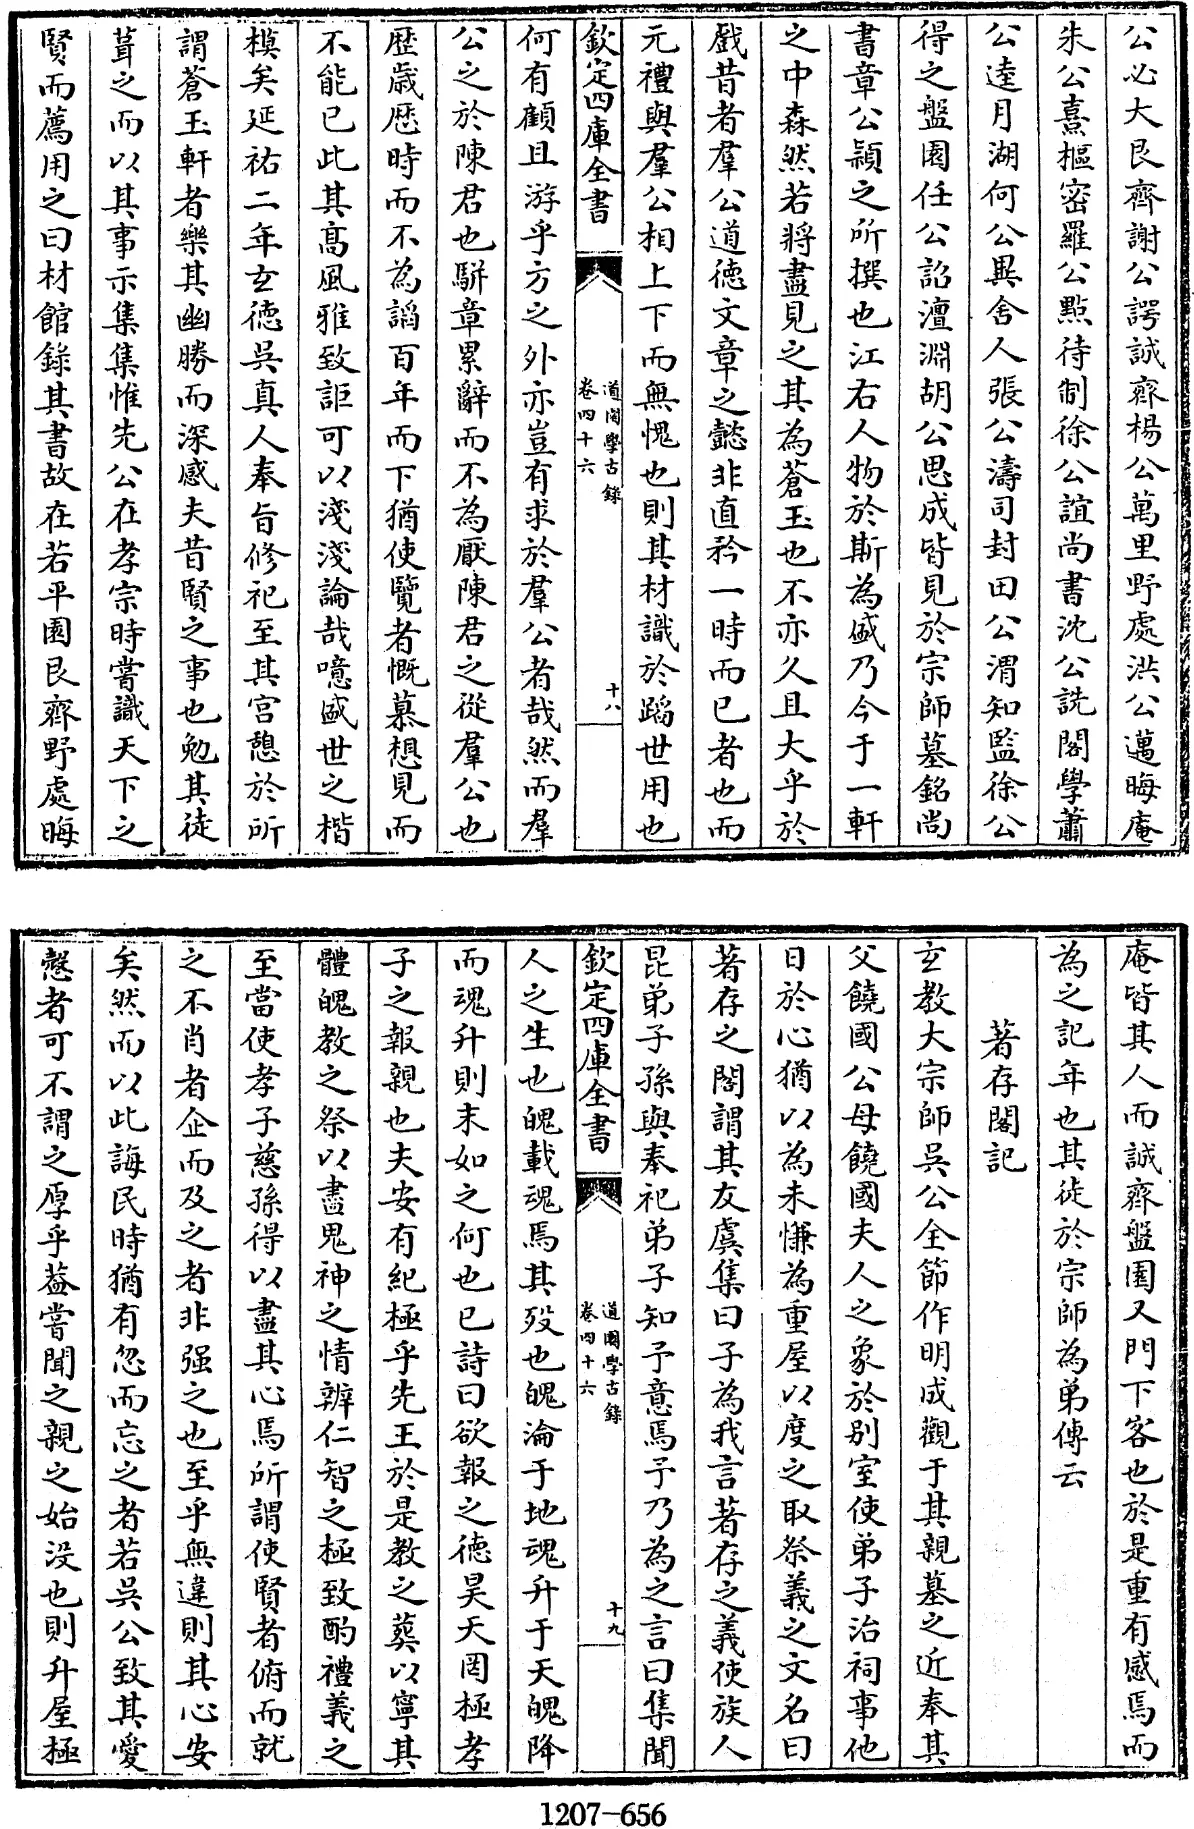 公必大艮齊謝公諤誠齋楊公萬里野處洪公邁晦庵
朱公熹樞密羅公㸃待制徐公誼尚書沈公詵閣學蕭
公逵月湖何公異舍人張公濤司封田公渭知監徐公
得之盤園任公詔澶淵胡公思成皆見於宗師墓銘尚
書章公頴之所撰也江右人物於斯為盛乃今于一軒
之中森然若將盡見之其為蒼玉也不亦久且大乎於
戲昔者羣公道徳文章之懿非直矜一時而已者也而
元禮與羣公相上下而無愧也則其材識於蹈世用也
欽定四庫全書
道園學古錄
卷四十六
十八
何有顧且游乎方之外亦豈有求於羣公者哉然而羣
公之於陳君也駢章累辭而不為厭陳君之從羣公也
歴歳歴時而不為謟百年而下猶使覽者慨慕想見而
不能已此其髙風雅致詎可以淺淺論哉噫盛世之楷
模矣延祐二年玄徳吳真人奉旨修祀至其宫憩於所
謂蒼玉軒者樂其幽勝而深感夫昔賢之事也勉其徒
葺之而以其事示集集惟先公在孝宗時嘗識天下之
賢而薦用之曰材館錄其書故在若平園艮齊野處晦
庵皆其人而誠齋盤園又門下客也於是重有感焉而
為之記年也其徒於宗師為弟傳云
著存閣記
玄教大宗師吳公全節作明成觀于其親墓之近奉其
父饒國公母饒國夫人之象於别室使弟子治祠事他
日於心猶以為未慊為重屋以度之取祭義之文名曰
著存之閣謂其友虞集曰子為我言著存之義使族人
昆弟子孫與奉祀弟子知予意焉予乃為之言曰集聞
欽定四庫全書
道園學古錄
卷四十六
十九
人之生也魄載魂焉其歿也魄淪于地魂升于天魄降
而魂升則末如之何也已詩曰欲報之德昊天罔極孝
子之報親也夫安有紀極乎先王於是教之葬以寧其
體魄教之祭以盡鬼神之情辨仁智之極致酌禮義之
至當使孝子慈孫得以盡其心焉所謂使賢者俯而就
之不肖者企而及之者非强之也至乎無違則其心安
矣然而以此誨民時猶有忽而忘之者若吳公致其愛
慤者可不謂之厚乎葢嘗聞之親之始没也則升屋極
1207-656